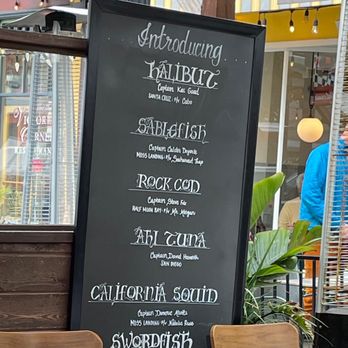 Introducing
HALIBUT
Captain Kai Good
SANTA CRUZ - F/V Cabo
SABLEFISH
Captain Calder Deyerle
MOSS LANDING - F/V
ROCK COD
Captain Steve Fitz
HALF MOON BAY - F/V Mr. Morgan
AHI TUNA
Captain David Haworth
SAN DIEGO
CALIFORNIA SQUID
Captain
MOSS LANDING - F/V
SWORDFISH